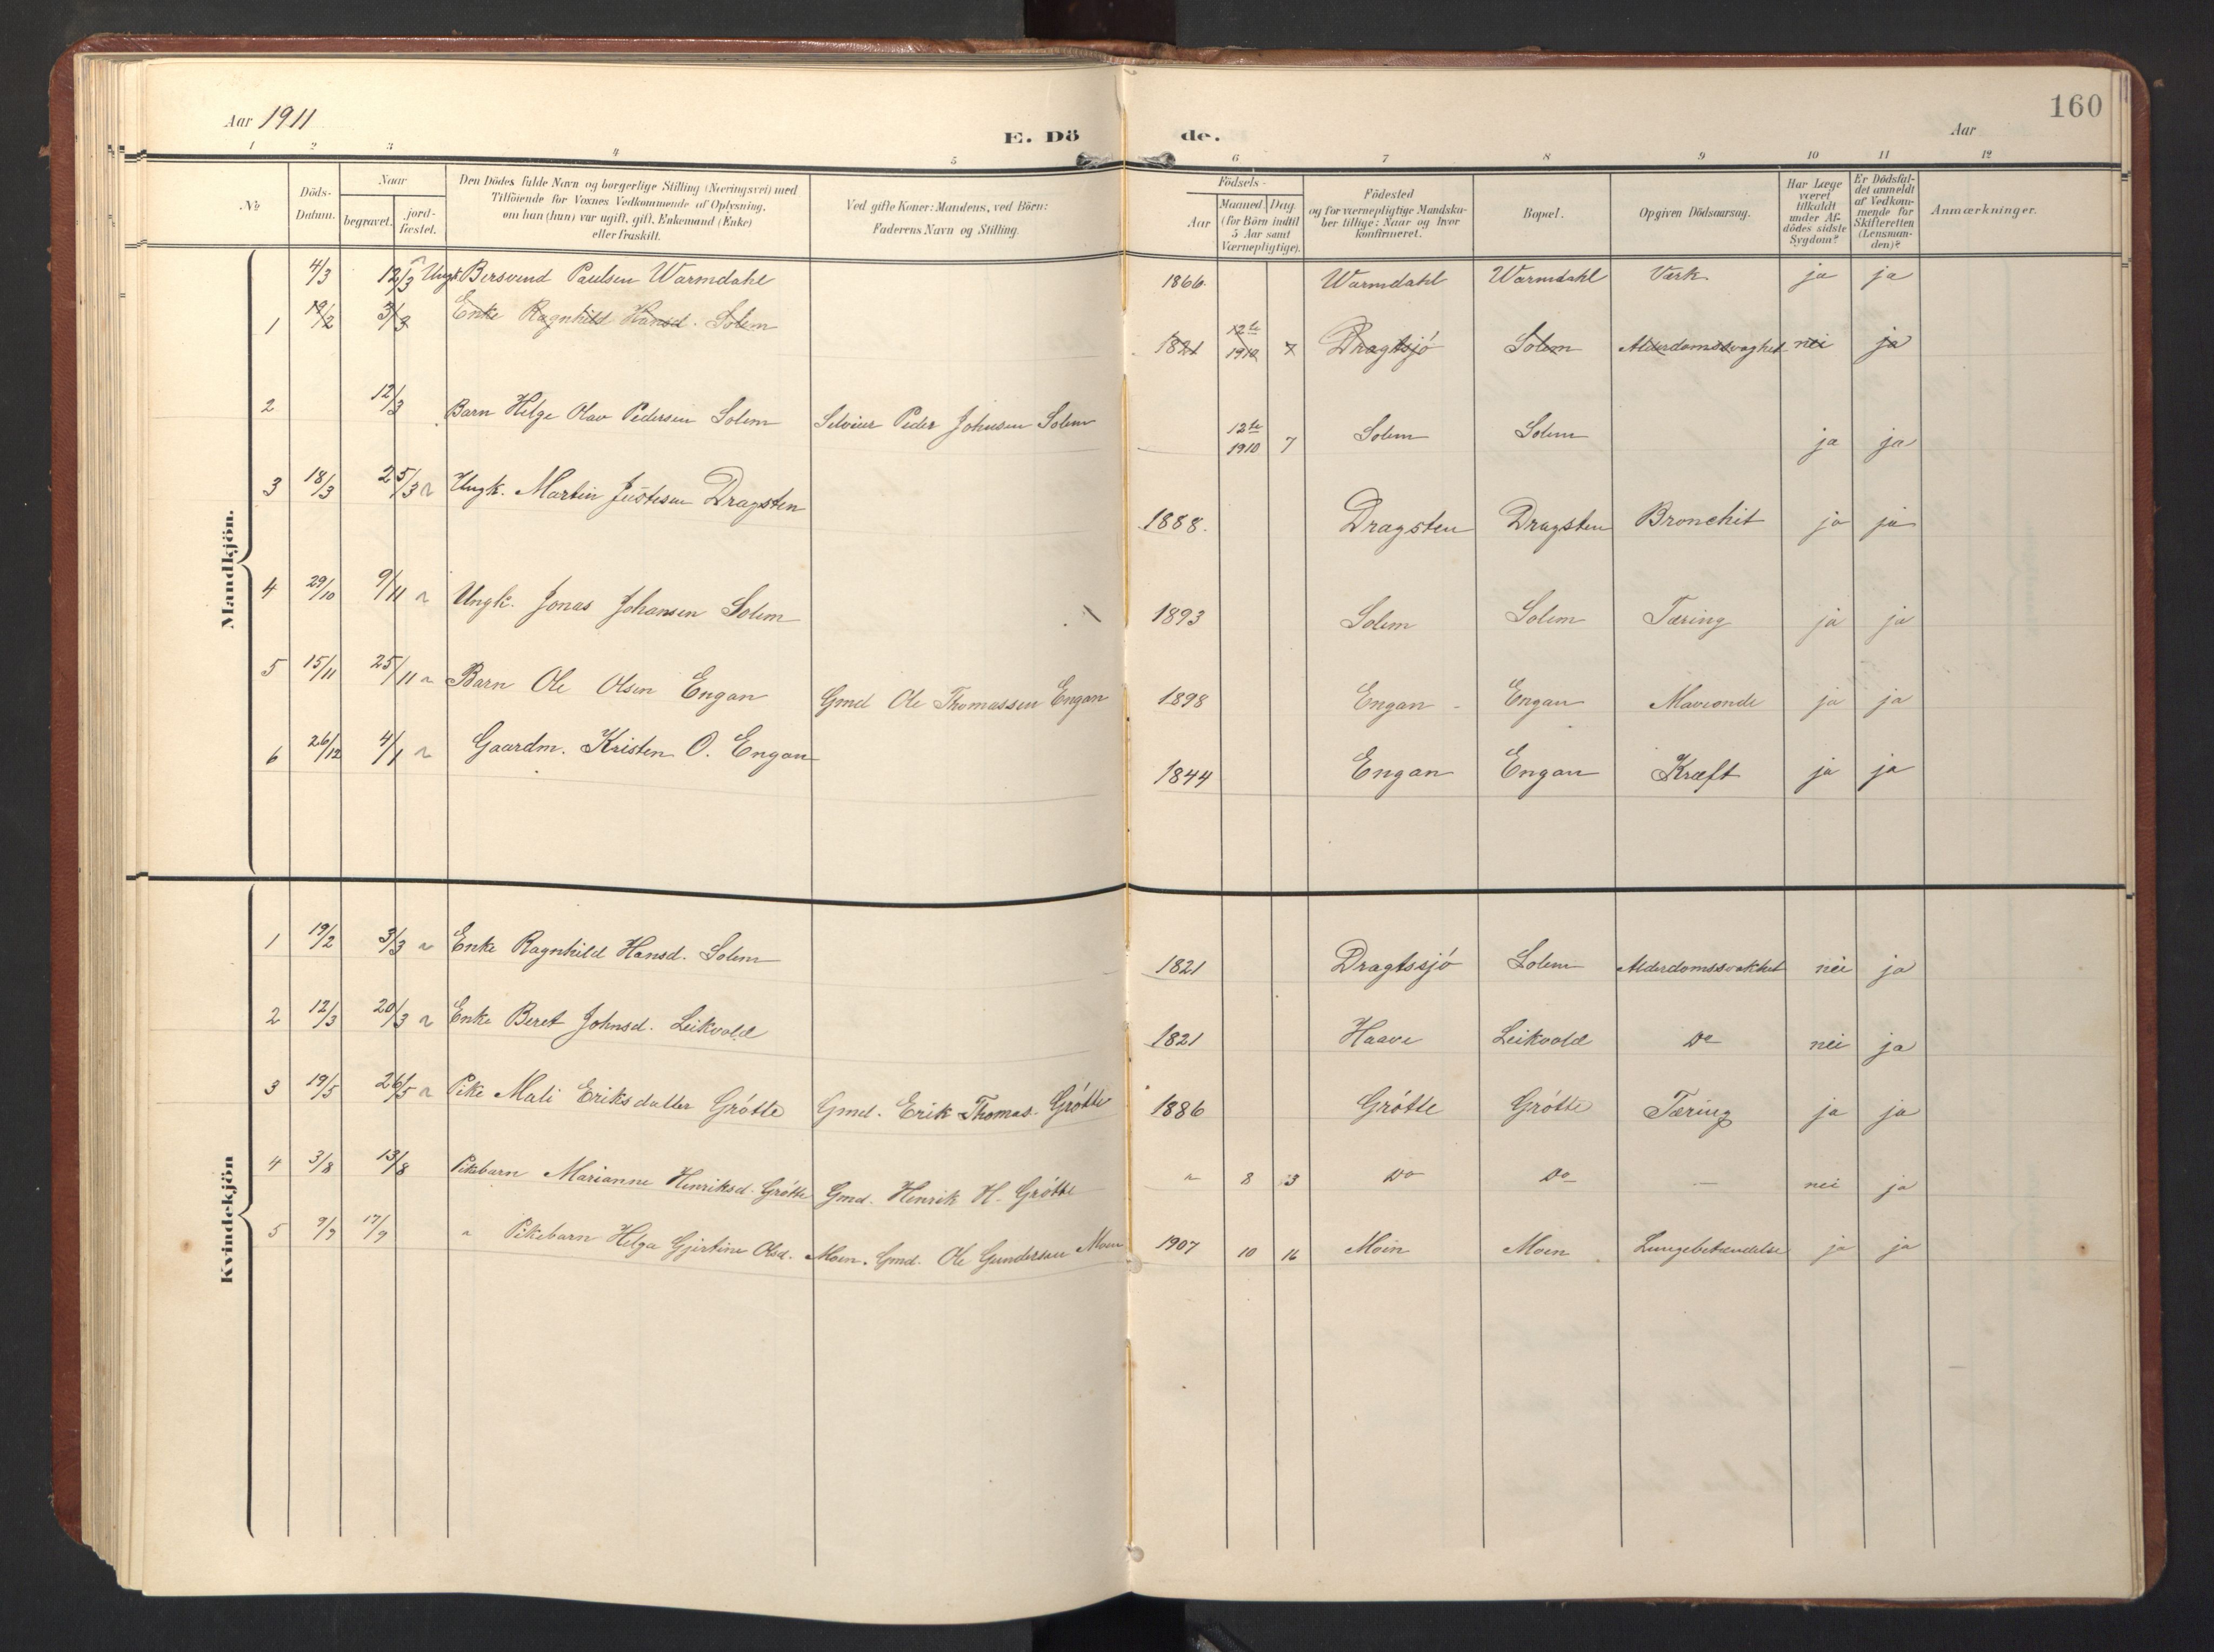 Aar 1911
E. Dö de.
Aar
160
1 2 3 4 5 6 7 8 9 10 11 12
No
Döds-Datum.
Naar
begravet.
jord-fæstet.
Den Dödes fulde Navn og borgerlige Stilling (Næringsvei) med
Tilföiende for Voxnes Vedkommende af Oplysning,
om han (hun) var ugift, gift, Enkemand (Enke)
eller fraskilt.
Ved gifte Koner: Mandens, ved Börn:
Faderens Navn og Stilling.
Födsels-
Aar
Maaned. Dag.
(for Börn indtil
5 Aar samt
Værnepligtige).
Födested
og for værnepligtige Mandska-
ber tillige: Naar og hvor
konfirmeret.
Bopæl.
Opgiven Dödsaarsag.
Har Læge
været
tilkaldt
under Af-
dödes sidste
Sygdom?
Er Dödsfal-
det anmeldt
af Vedkom-
mende for
Skifteretten
(Lensman-
den)?
Anmærkninger.
Mandkjön.
4/3 12/3 Ungk. Bersvend Paulsen Warmdahl 1866. Warmdahl Warmdahl Værk ja ja
1 19/2 3/3 Enke Ragnhild Hansd. Solem 1821 12te 1910 7 Dragtsjö Solem Alderdomssvaghet nei ja
2 12/3 Barn Helge Olav Pedersen Solem Selveier Peder Johnsen Solem 12te 1910 7 Solem Solem ja ja
3 18/3 25/3 Ungk. Martin Justesen Dragsten 1888. Dragsten Dragsten Bronchit ja ja
4 29/10 9/11 Ungk. Jonas Johansen Solem 1893 Solem Solem Tæring ja ja
5 15/11 25/11 Barn Ole Olsen Engan Gmd Ole Thomassen Engan 1898 Engan Engan Maveonde ja ja
6 26/12 4/1 Gaardm. Kristen O. Engan 1844 Engan Engan Kræft ja ja
Kvindekjön
1 19/2 3/3 Enke Ragnhild Hansd. Solem 1821 Dragtssjö Solem Alderdomssvakhet nei ja
2 12/3 20/3 Enke Beret Johnsd. Leikvold 1821 Haave Leikvold Do nei ja
3 19/5 26/5 Pike Mali Eriksdatter Grötte Gmd. Erik Thomas. Grötte 1886 Grötte Grötte Tæring ja ja
4 3/8 13/8 Pikebarn Marianne Henriksd. Grötte Gmd. Henrik H. Grötte " 8 3 Do Do — nei ja
5 7/9 17/9 " Pikebarn Helga Gjertine Olsd. Moen. Gmd. Ole Gundersen Moen 1907 10 16 Moen Moen Lungebetændelse ja ja